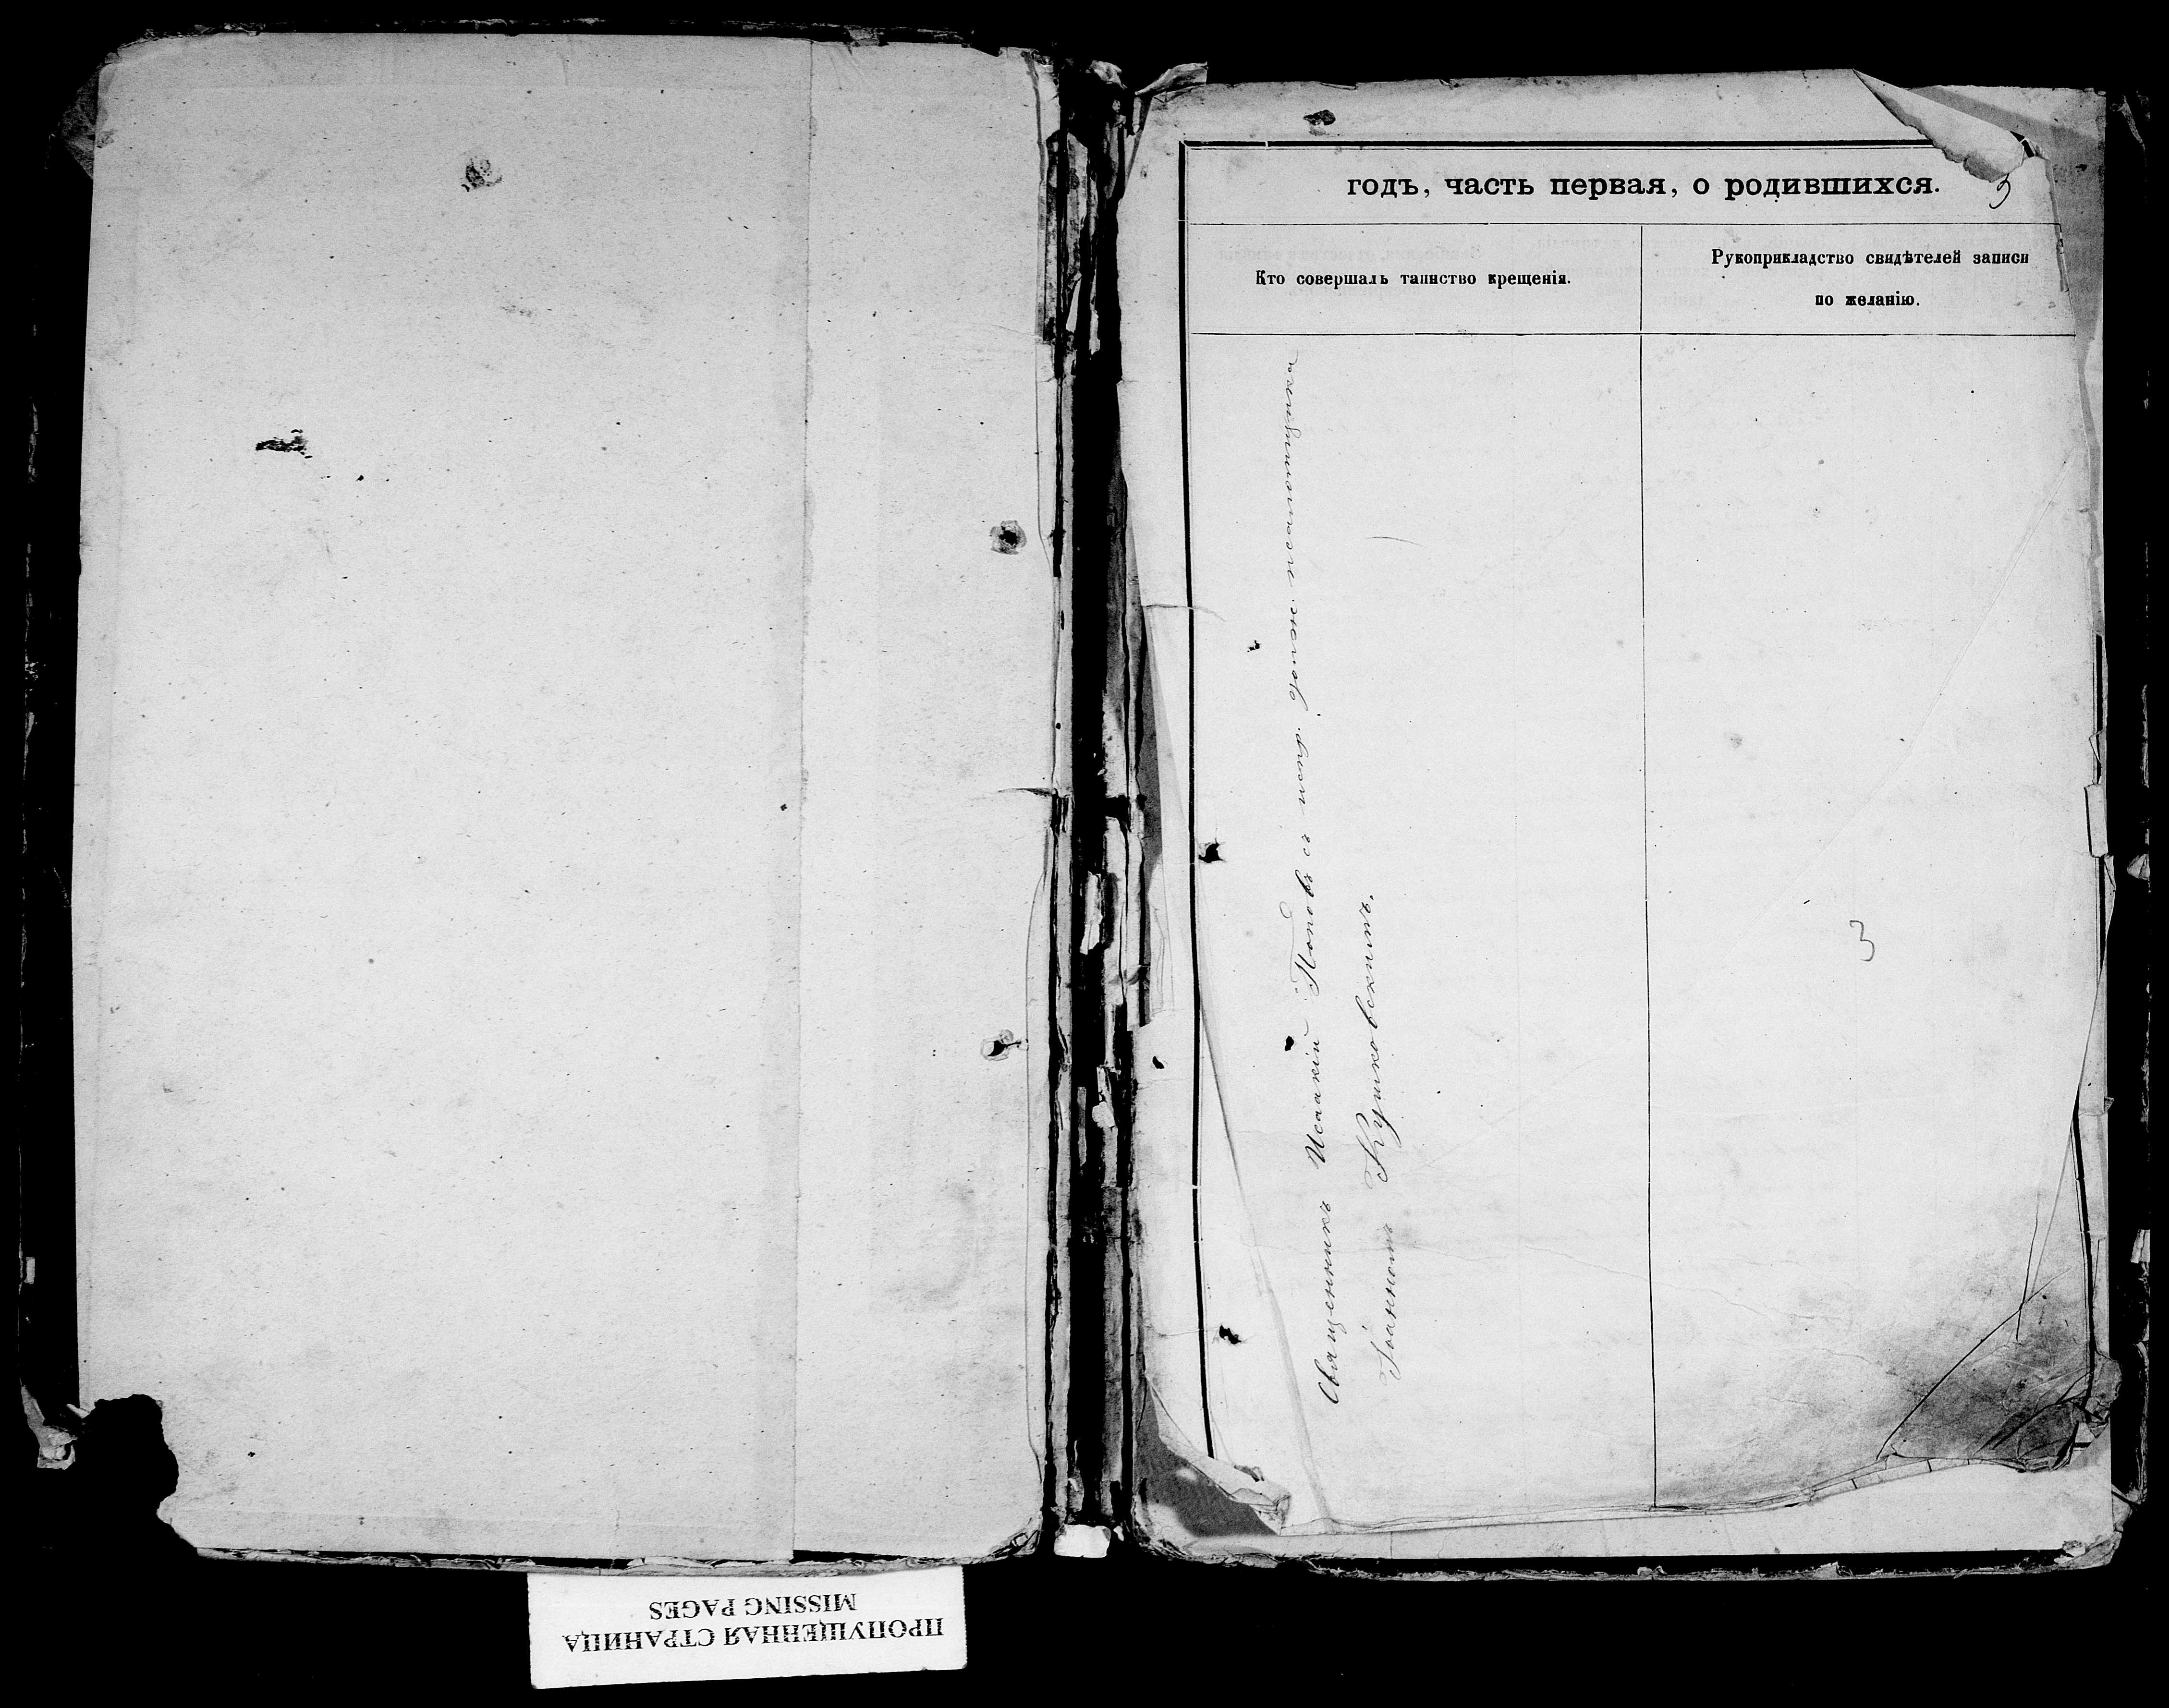 годъ, часть первая, о родившихся.
3
Кто совершалъ таинство крещенія.
Рукоприкладство свидѣтелей записи
по желанію.
Священникъ Исаакій Поповъ съ испр. долж. псаломщика
Іоанномъ Кушковскимъ.
3
ПРОПУЩЕННАЯ СТРАНИЦА
MISSING PAGES